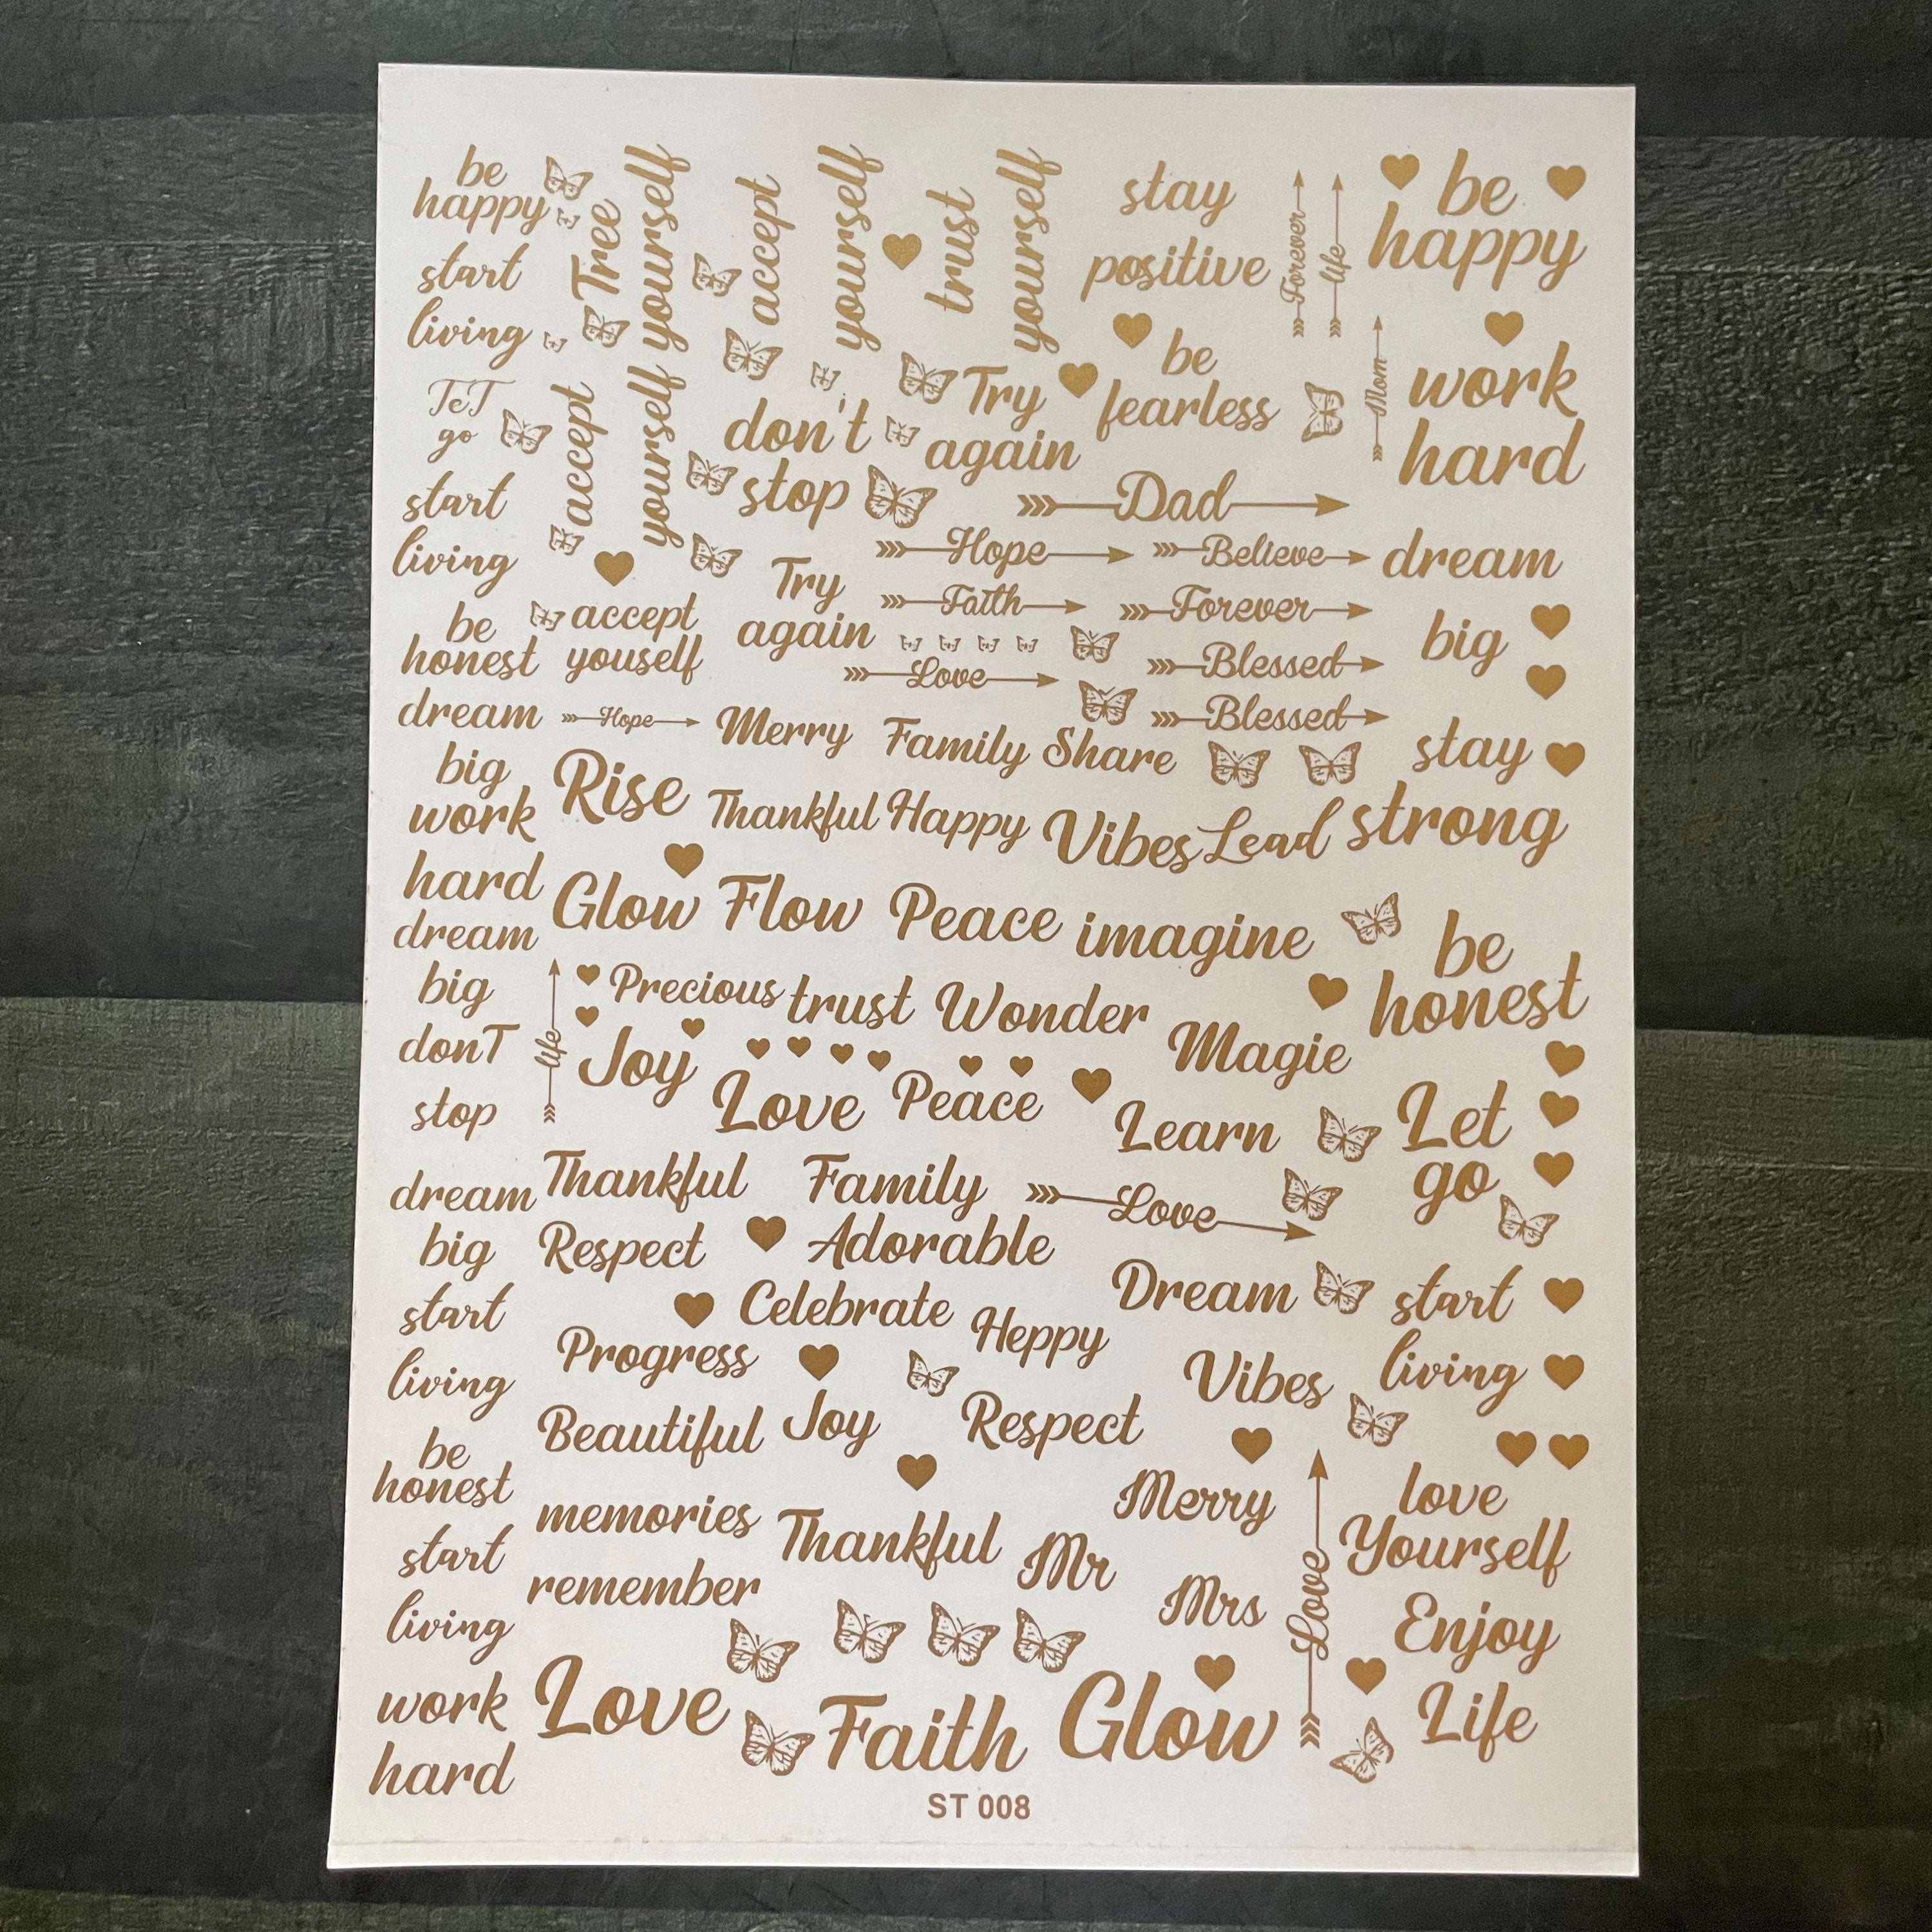 be
happy
start
living
Tree
yourself
accept
yourself
trust
yourself
stay
positive
Forever
life
be
happy
TeT
go
start
living
accept
yourself
don't
stop
Try
again
be
fearless
Mom
work
hard
Dad
Hope
Believe
dream
Faith
Forever
big
Try
again
Love
Blessed
Blessed
be
honest
accept
youself
dream
Hope
Merry
Family
Share
stay
strong
big
work
hard
Rise
Thankful
Happy
Vibes
Lead
Glow
Flow
Peace
imagine
be
honest
dream
big
life
Precious
trust
Wonder
Magie
donT
stop
Joy
Love
Peace
Learn
Let
go
dream
big
Thankful
Family
Love
Respect
Adorable
Dream
start
living
start
living
Celebrate
Heppy
Progress
Vibes
Beautiful
Joy
Respect
be
honest
Merry
Love
love
Yourself
memories
Thankful
Mr
Mrs
start
living
remember
Enjoy
Life
work
hard
Love
Faith
Glow
ST 008